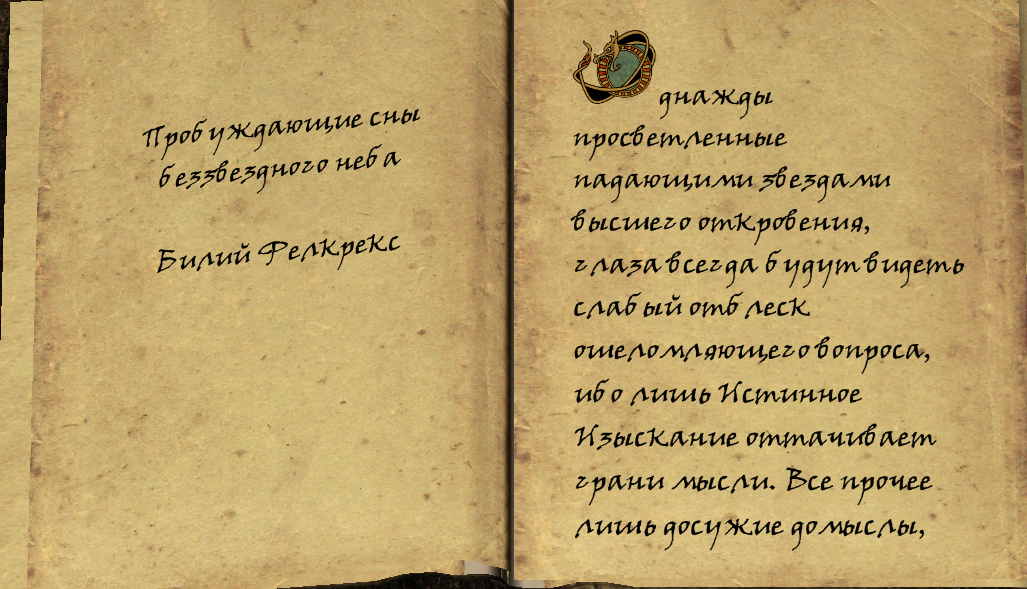 Пробуждающие сны
беззвездного неба
Билий Фелкрекс
Однажды
просветленные
падающими звездами
высшего откровения,
глаза всегда будут видеть
слабый отблеск
ошеломляющего вопроса,
ибо лишь Истинное
Изыскание оттачивает
грани мысли. Все прочее
лишь досужие домыслы,